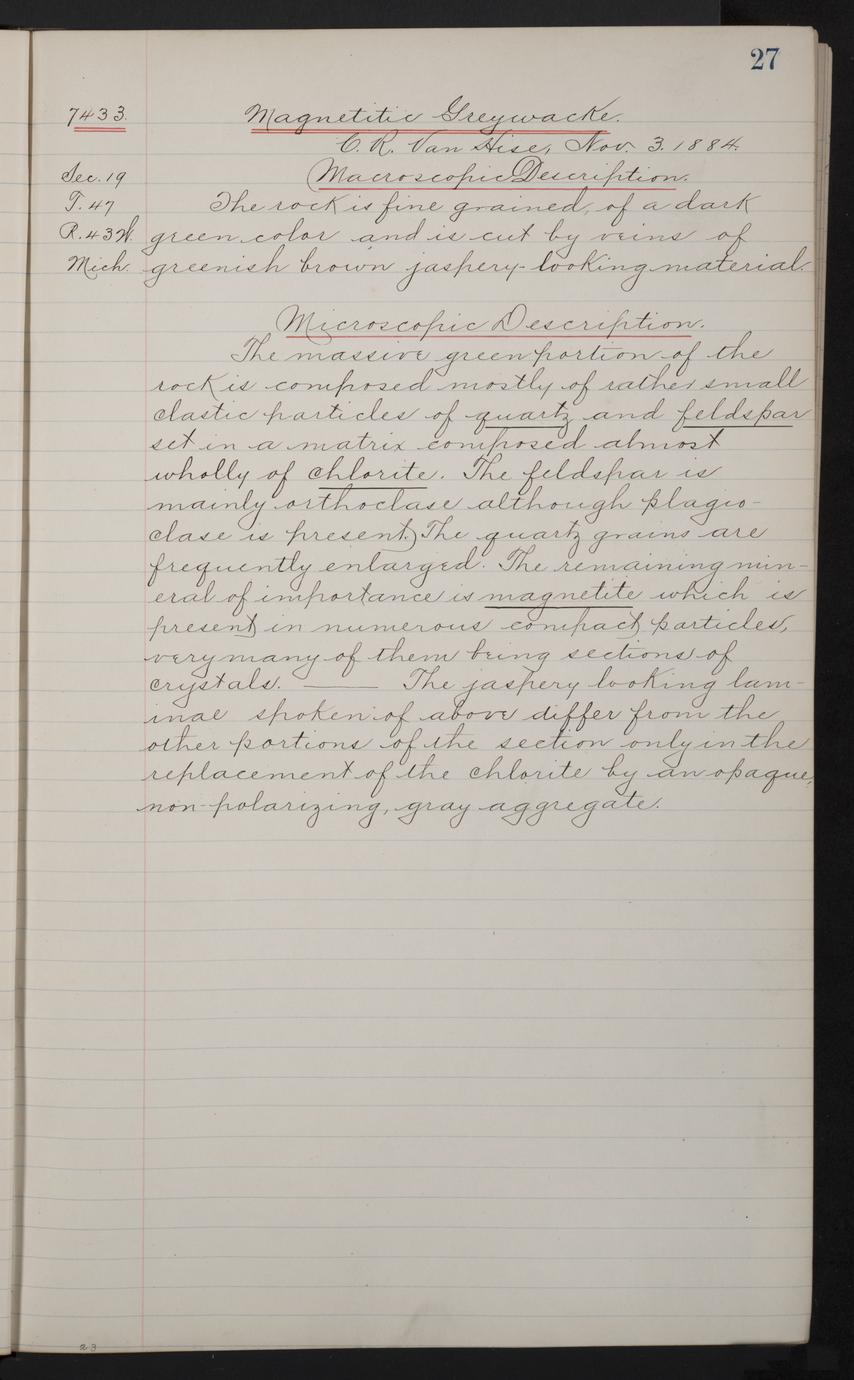 27
7433. Magnetitic Greywacke.
C. R. Van Hise, Nov. 3. 1884.
Sec. 19 Macroscopic Description.
T. 47 The rock is fine grained, of a dark
R. 43 W. green color and is cut by veins of
Mich. greenish brown jaspery-looking material.
Microscopic Description.
The massive green portion of the
rock is composed mostly of rather small
clastic particles of quartz and feldspar
set in a matrix composed almost
wholly of chlorite. The feldspar is
mainly orthoclase although plagio-
clase is present. The quartz grains are
frequently enlarged. The remaining min-
eral of importance is magnetite which is
present in numerous compact particles,
very many of them being sections of
crystals. —— The jaspery looking lam-
inae spoken of above differ from the
other portions of the section only in the
replacement of the chlorite by an opaque,
non-polarizing, gray aggregate.
23